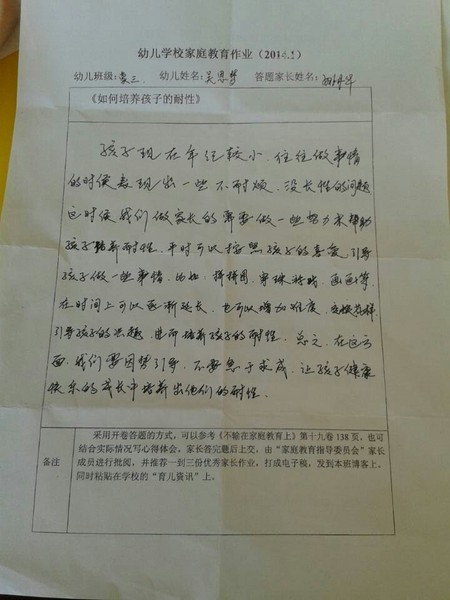 幼儿学校家庭教育作业（201
幼儿班级：蒙三 幼儿姓名：吴恩 答题家长姓名：
《如何培养孩子的耐性》
孩子现在年纪较小，往往做事情
的时候表现出一些不耐烦，没长性的问题
这时侯我们做家长的需要做一些努力来帮助
孩子培养耐性，平时可以按照孩子的喜爱，引导
孩子做一些事情，比如：拼拼图，穿珠游戏，画画等，
在时间上可以逐渐延长，也可以增加难度，变换花样，
引导孩子的兴趣，进而培养孩子的耐性。总之，在这方
面，我们要因势引导，不要急于求成，让孩子健康
快乐的成长中培养出他们的耐性。
备注
采用开卷答题的方式，可以参考《不输在家庭教育上》第十九卷138页，也可
结合实际情况写心得体会。家长答完题后上交，由“家庭教育指导委员会”家长
成员进行批阅，并推荐一到三份优秀家长作业，打成电子稿，发到本班博客上，
同时粘贴在学校的“育儿资讯”上。